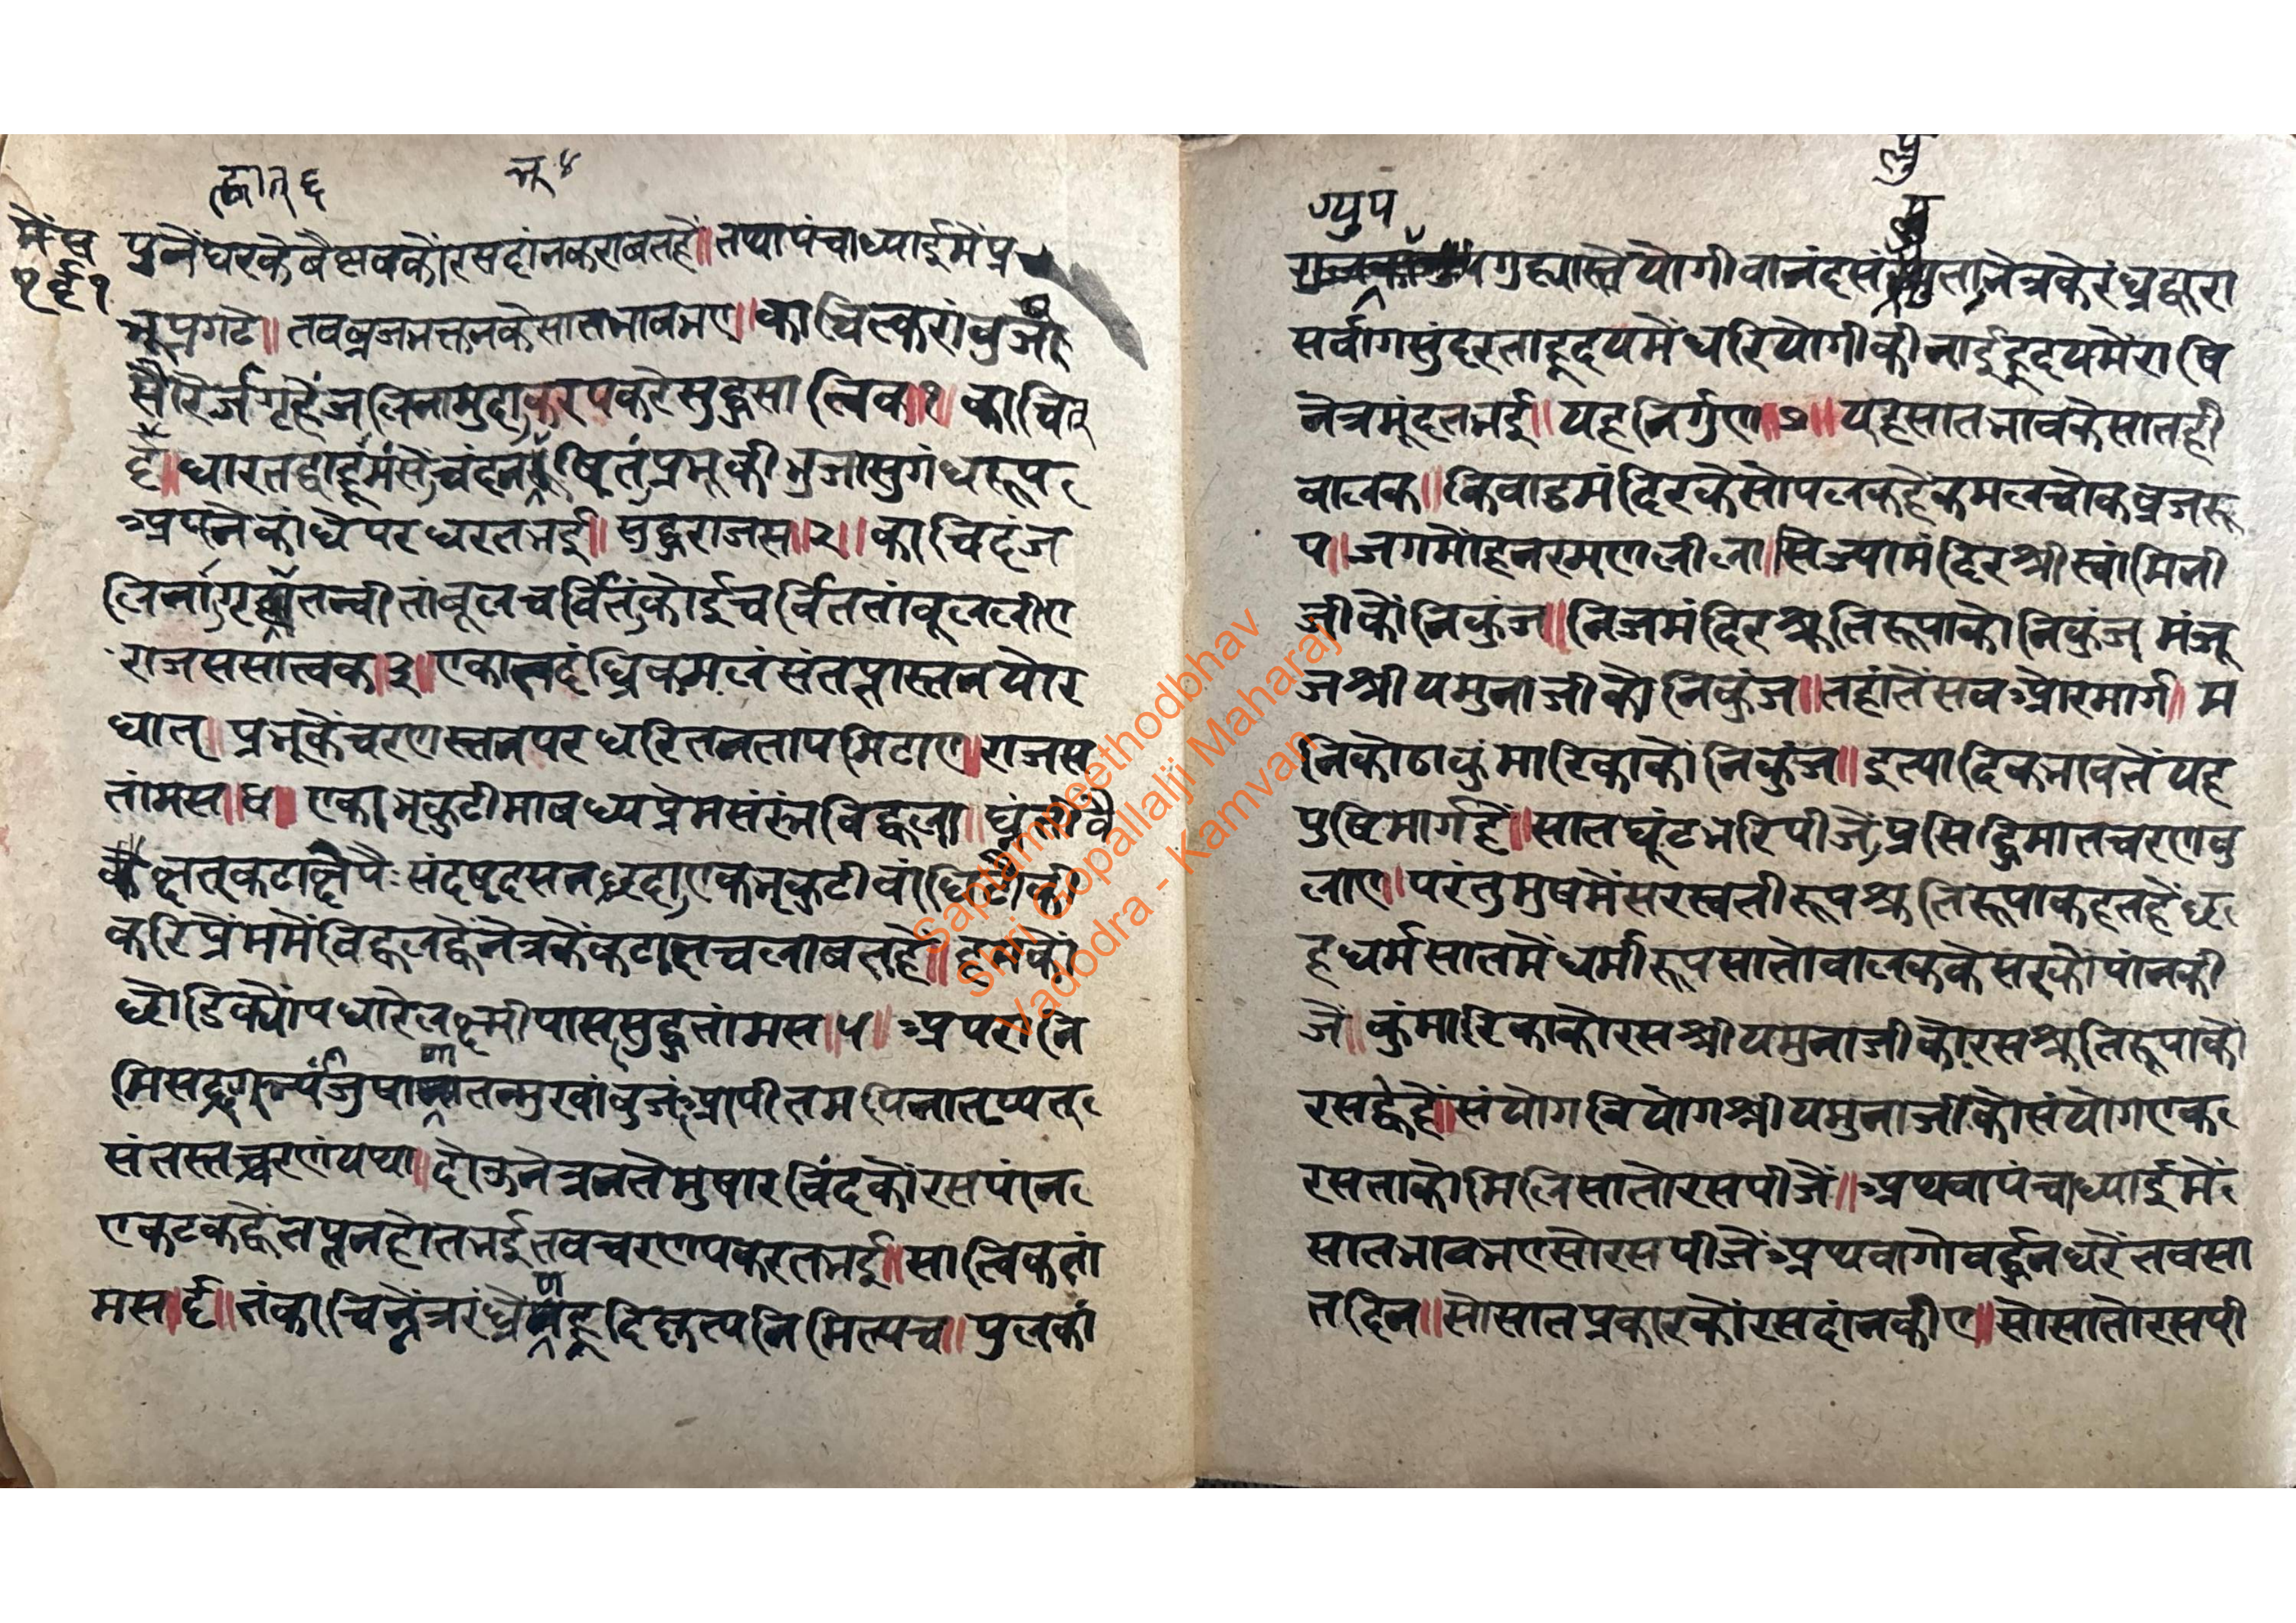 त्वात् ६ भू ४
मैं ष
पुनें घरके बैष्णवकों रसदांनकराबतहैं॥ तथापंचाध्याईमेंप्र
भूप्रगटे॥ तवब्रजभक्तनकेसातभावभए॥ काचित्करांबुजं
सौरेर्जगृहेंजलिनामुदा करपकरेसुद्धसात्विक॥१ काचित्
दधारतद्वाहूमंसे चंदन भूषितं प्रभूकी भुजासुगंधरूप
अपनेकांधेपरधरतभई॥ सुद्धराजस॥२॥ काचिदंज
लिनागृह्णात्तन्वी तांबूलचर्वितं कोईचर्विततांबूललीए
राजससात्वक॥३॥ एकातदंघ्रिकमलंसंतप्तास्तनयोर
धात्॥ प्रभूकेंचरणस्तनपरधरितनतापमिटाए॥ राजस
तांमस॥४॥ एकाभृकुटीमाबध्यप्रेमसंरंभविह्वला॥ घ्नंतीवै
क्षत्कटाक्षेपैः संदष्टदसनछदा एकभृकुटीवांधि
करिप्रेंममेंविह्वलह्वेनेत्रकेंकटाक्षचलाबतहें॥ हमकों
छोडिक्योंपधारेलक्ष्मीपाससुद्धतांमस॥५॥ अपरानि
मिसद्दृग्भ्यांजुषाणातन्मुखांवुजंआपीतमपिनातृप्यत्
संतस्तच्चरणंयथा॥ दोऊनेत्रनतेमुषारविंदकोंरसपांन
एकटकह्वेतप्तनहोतभईतवचरणपकरतभई॥ सात्विकतां
मस॥६॥ तंकाचिन्नेत्ररंध्रेण हृदिकृत्यनिमिल्यच॥ पुलकां
ग्युप
यु
गुह्यास्तेयोगीवानंदसं प्लुता नेत्रकेरंध्रद्वारा
सर्वांगसुंदरताहृदयमेंधरियोगीकीनाईहृदयमेंराषि
नेत्रमूंदतभई॥ यहनिर्गुण॥७॥ यहसातभावकेसातही
वालक॥ किवाडमंदिरकेसोपलकहेंकमलचोकब्रजरू
प॥ जगमोंहनरमणलीला॥ सिज्यामंदिरश्रीस्वांमिनी
जीकोंनिकुंज॥ निजमंदिरश्रुतिरूपाकोनिकुंज मंजू
जश्रीयमुनाजीकोनिकुंज॥ तहांतेंसवओरमार्ग॥ म
निकोठाकुंमारिकाकोंनिकुंज॥ इत्यादिकभावतेंयह
पुष्टिमार्गहें॥ सातघूंटभरिपीजें प्रसिद्धिमातचरणवु
लाए॥ परंतुमुषमेंसरस्वतीरूपश्रुतिरूपाकहतहेंछ
हधर्मसातमेंधर्मीरूपसातोवालककेसरकोंपांनकी
जें॥ कुंमारिकाकोरसश्रीयमुनाजीकोरसश्रुतिरूपाकों
रसद्वेहें॥ संयोगवियोगश्रीयमुनाजीकोसंयोगएक
रसताकोमिलिसातोरसपीजें॥ अथवापंचाध्याईमें
सातभावभएसोरसपीजेंअथवागोवर्द्धनधरेंतवसा
तदिन॥ सोसातप्रकारकोंरसदांनकीए॥ सोसातोरसपी
Saptampeethodbhav
Shri Gopallalji Maharaj
Vadodra - Kamvan